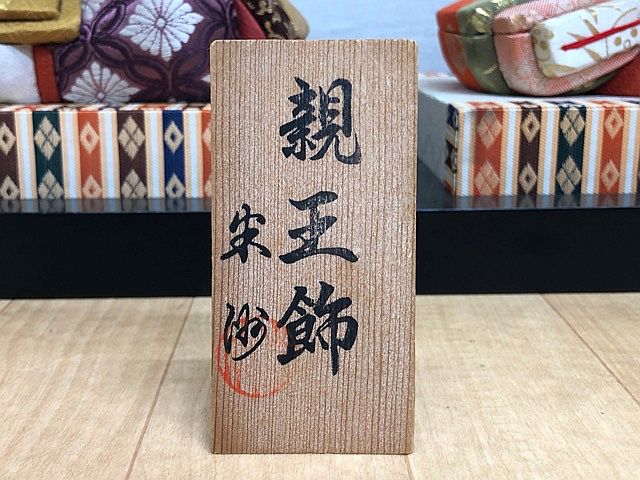 親王飾
宋洲